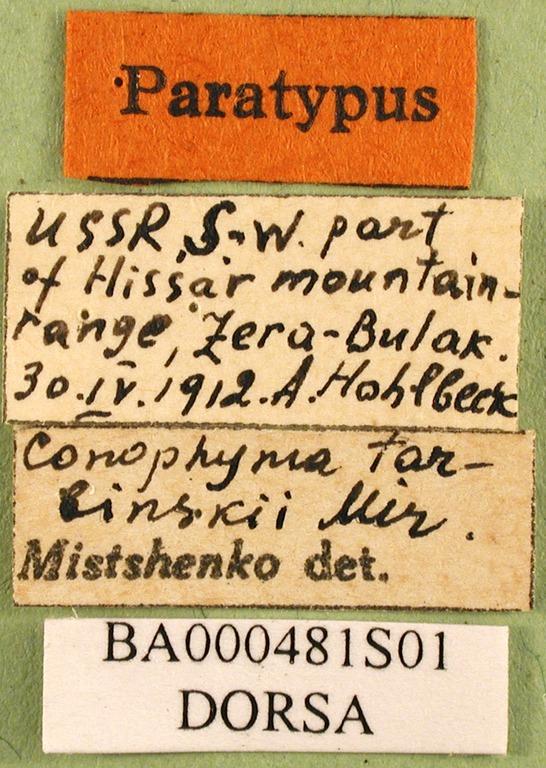 Paratypus
USSR, S-W. part
of Hissar mountain-
range, Zera-Bulak.
30.IV.1912. A. Hohlbeck
Conophyma tar-
binskii Mir.
Mistshenko det.
BA000481S01
DORSA